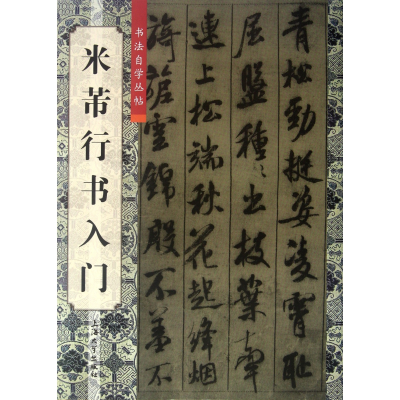 书法自学丛帖
米芾行书入门
上海大学出版社
青松勁挺姿凌霄耻
屈盤種〻出枝葉牽
連上松端秋花起絳烟
旖旎雲錦殷不羞不